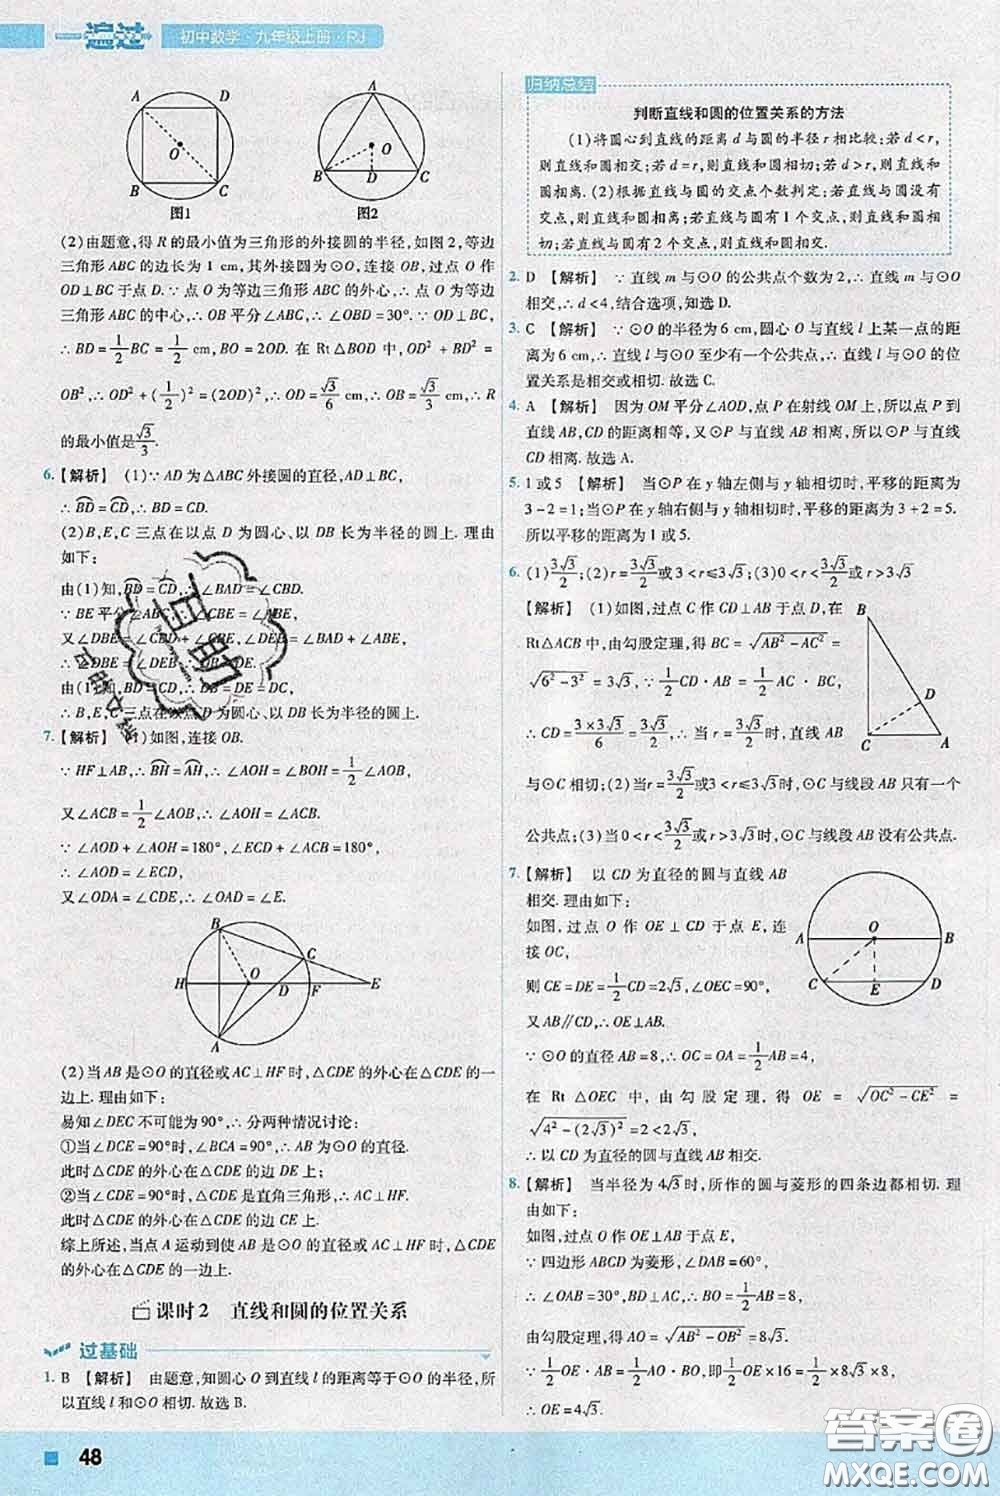 一遍过 初中数学·九年级上册·RJ
A D
O
B C
图1
A
O
B D C
图2
(2)由题意,得 R 的最小值为三角形的外接圆的半径,如图2,等边
三角形 ABC 的边长为 1 cm,其外接圆为⊙O,连接 OB,过点 O 作
OD⊥BC于点 D.∵点 O 为等边三角形 ABC 的外心,∴点 O 为等边
三角形 ABC 的中心,∴OB 平分∠ABC,∴∠OBD=30°.∵OD⊥BC,
∴BD=1/2BC=1/2 cm,BO=2OD. 在 Rt△BOD 中,OD²+BD²=
OB²,∴OD²+(1/2)²=(2OD)²,∴OD=√3/6 cm,OB=√3/3 cm,∴R
的最小值是√3/3.
6.【解析】 (1)∵AD 为△ABC 外接圆的直径,AD⊥BC,
∴B͡D=C͡D,∴BD=CD.
(2)B,E,C 三点在以点 D 为圆心、以 DB 长为半径的圆上. 理由
如下:
由(1)知,B͡D=C͡D,∴∠BAD=∠CBD.
∵BE平分∠ABC,∴∠CBE=∠ABE.
又∠DBE=∠CBD+∠CBE,∠DEB=∠BAD+∠ABE,
∴∠DBE=∠DEB,∴DB=DE.
由(1)知,BD=CD,∴DB=DE=DC,
∴B,E,C三点在以点 D 为圆心、以 DB 长为半径的圆上.
7.【解析】 (1)如图,连接 OB.
∵HF⊥AB,∴B͡H=A͡H,∴∠AOH=∠BOH=1/2∠AOB.
又∠ACB=1/2∠AOB,∴∠AOH=∠ACB.
∵∠AOD+∠AOH=180°,∠ECD+∠ACB=180°,
∴∠AOD=∠ECD.
又∠ODA=∠CDE,∴∠OAD=∠E.
B
C
H O D F E
A
(2)当 AB 是⊙O 的直径或 AC⊥HF 时,△CDE 的外心在△CDE 的一
边上. 理由如下:
易知∠DEC 不可能为90°,∴分两种情况讨论:
①当∠DCE=90°时,∠BCA=90°,∴AB为⊙O 的直径.
此时△CDE 的外心在△CDE 的边 DE 上;
②当∠CDE=90°时,△CDE 是直角三角形,∴AC⊥HF.
此时△CDE 的外心在△CDE 的边 CE 上.
综上所述,当点 A 运动到使 AB 是⊙O 的直径或 AC⊥HF 时,△CDE
的外心在△CDE 的一边上.
课时2 直线和圆的位置关系
过基础
1. B 【解析】 由题意,知圆心 O 到直线 l 的距离等于⊙O 的半径,所
以直线 l 和⊙O 相切. 故选 B.
归纳总结
判断直线和圆的位置关系的方法
(1)将圆心到直线的距离 d 与圆的半径 r 相比较:若 d<r,
则直线和圆相交;若 d=r,则直线和圆相切;若 d>r,则直线和
圆相离.(2)根据直线与圆的交点个数判定:若直线与圆没有
交点,则直线和圆相离;若直线与圆有1个交点,则直线和圆相
切;若直线与圆有2个交点,则直线和圆相交.
2. D 【解析】 ∵直线 m 与⊙O 的公共点个数为2,∴直线 m 与⊙O
相交,∴d<4,结合选项,知选 D.
3. C 【解析】 ∵⊙O 的半径为6 cm,圆心 O 与直线 l 上某一点的距
离为6 cm,∴直线 l 与⊙O 至少有一个公共点,∴直线 l 与⊙O 的位
置关系是相交或相切. 故选 C.
4. A 【解析】 因为 OM 平分∠AOD,点 P 在射线 OM 上,所以点 P 到
直线 AB,CD 的距离相等,又⊙P 与直线 AB 相离,所以⊙P 与直线
CD 相离. 故选 A.
5. 1或5 【解析】 当⊙P 在 y 轴左侧与 y 轴相切时,平移的距离为
3-2=1;当⊙P 在 y 轴右侧与 y 轴相切时,平移的距离为 3+2=5.
所以平移的距离为1或5.
6. (1)3√3/2;(2)r=3√3/2或3<r≤3√3;(3)0<r<3√3/2或r>3√3
【解析】 (1)如图,过点 C 作 CD⊥AB 于点 D,在
Rt△ACB 中,由勾股定理,得 BC=√(AB²-AC²)=
√(6²-3²)=3√3,∵1/2CD·AB=1/2AC·BC,
∴CD=3×3√3/6=3√3/2,∴当 r=3√3/2时,直线 AB
B
D
C A
与⊙C 相切;(2)当r=3√3/2或3<r≤3√3时,⊙C与线段 AB 只有一个
公共点;(3)当0<r<3√3/2或r>3√3时,⊙C与线段 AB 没有公共点.
7.【解析】 以 CD 为直径的圆与直线 AB
相交. 理由如下:
如图,过点 O 作 OE⊥CD 于点 E,连
接 OC,
则 CE=DE=1/2CD=2√3,∠OEC=90°,
又 AB∥CD,∴OE⊥AB.
∵⊙O 的直径 AB=8,∴OC=OA=1/2AB=4,
A O B
C E D
在 Rt△OEC 中,由勾股定理,得 OE=√(OC²-CE²)=
√(4²-(2√3)²)=2<2√3,
∴以 CD 为直径的圆与直线 AB 相交.
8.【解析】 当半径为4√3时,所作的圆与菱形的四条边都相切. 理
由如下:
如图,过点O作OE⊥AB于点E.
∵四边形 ABCD 为菱形,∠DAB=60°,
∴∠OAB=30°,BD⊥AC,∴BO=1/2AB=8,
由勾股定理,得 AO=√(AB²-OB²)=8√3.
∵1/2OE·AB=1/2AO·BO,即1/2OE×16=1/2×8√3×8,
∴OE=4√3.
48
答案圈
MXQE.COM